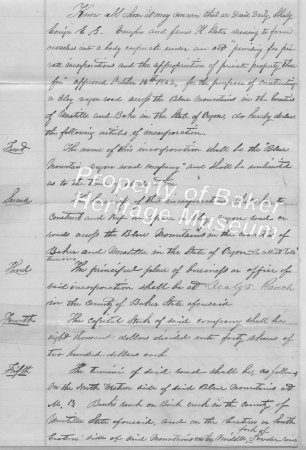 Know all whom it may concern that we David Daily, Shely
Craige E. S. Caufre and James H. Slater desiring to form
ourselves into a body corporate under an act providing for private
incorporations and the appropriation of private property there
for approved October 14th 1862, for the purpose of constructing
a clay wagon road across the Blue Mountains in the Counties
of Umatilla and Baker in the State of Oregon, do hereby declare
the following articles of incorporation.
First The name of this incorporation shall be the "Blue
Mountain wagon road company" and shall be unlimited
as to its
Second
construct and keep in wagon road or
roads across the Blue Mountains in the counties of
Baker and Umatilla in the State of Oregon to collect tolls
thereon
Third The principal place of business or office of
said incorporation shall be at Ranch
in the County of Baker State aforesaid
Fourth The capital stock of said company shall be
eight thousand dollars divided into forty shares of
two hundred dollars each
Fifth The termini of said road shall be, as follows
On the North Western side of said Blue Mountains at
M. B. ranch on Birch creek in the county of
Umatilla State aforesaid, and on the Eastern or South
Eastern side of said Mountains on the Middle fork of Powder river
Property of Baker
Heritage Museum